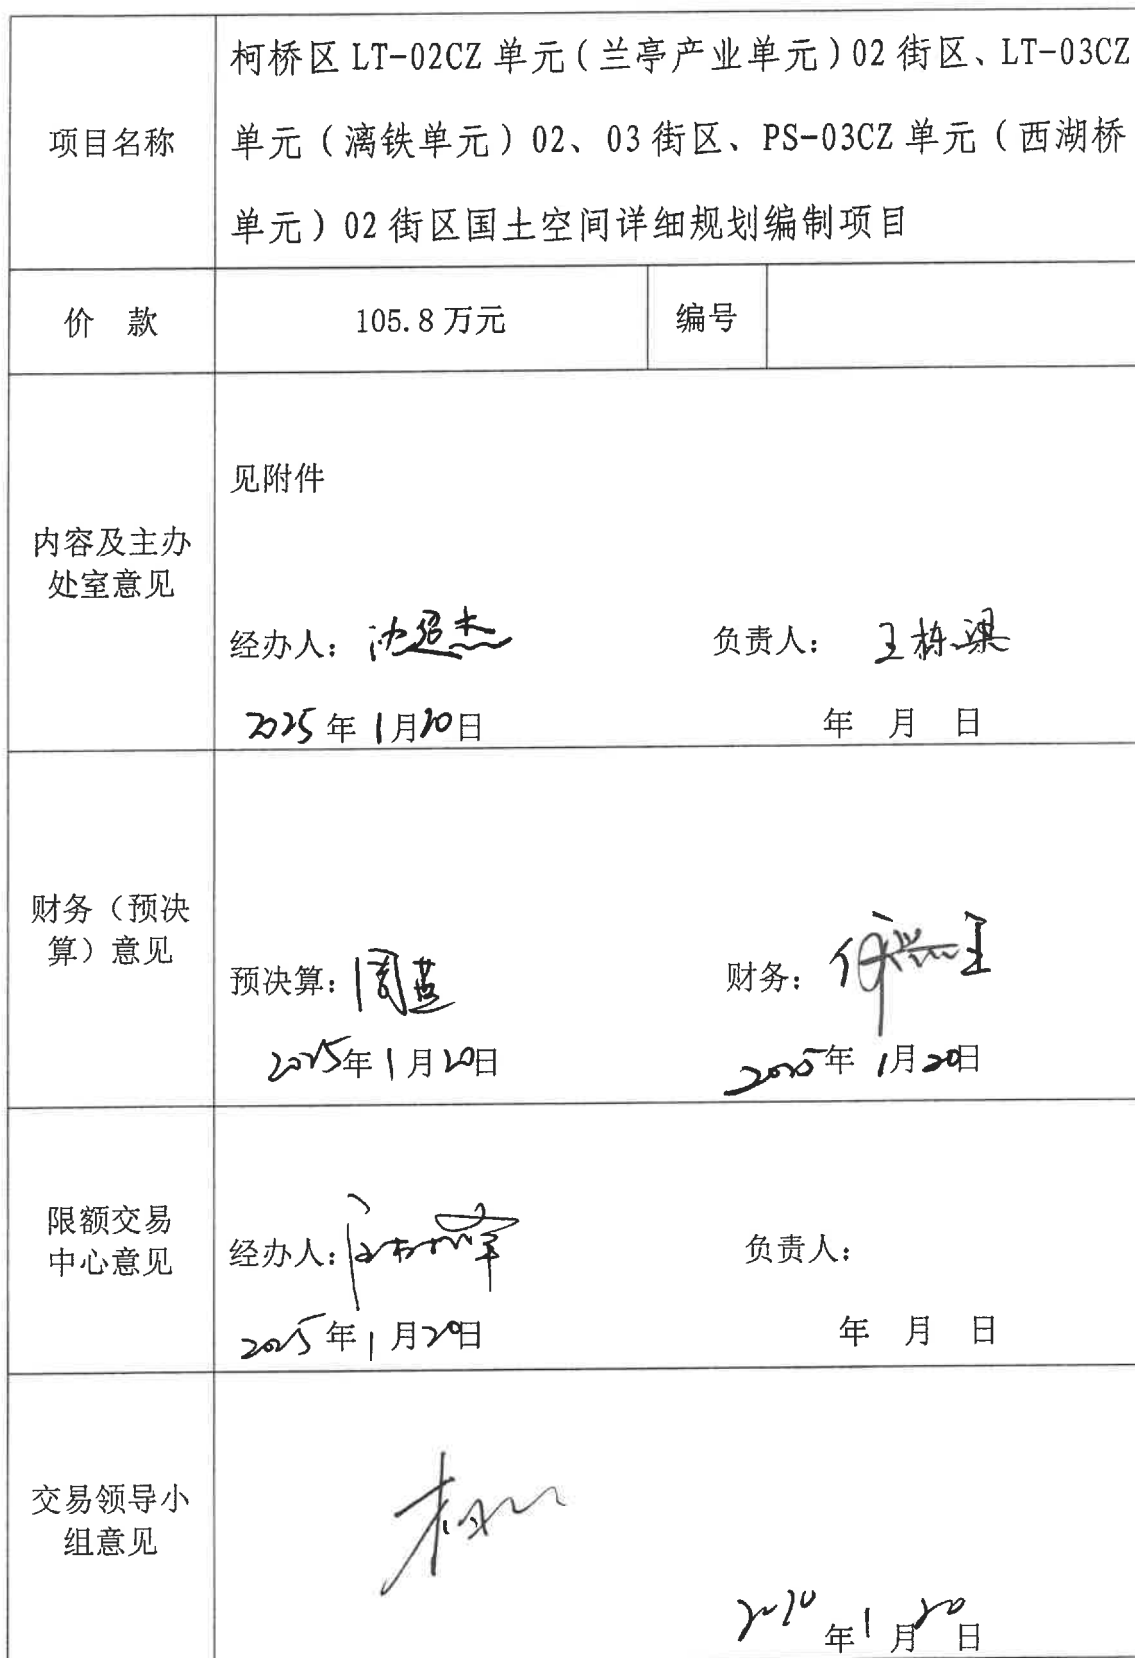 项目名称
柯桥区 LT-02CZ 单元（兰亭产业单元）02 街区、LT-03CZ
单元（漓铁单元）02、03 街区、PS-03CZ 单元（西湖桥
单元）02 街区国土空间详细规划编制项目
价 款 105.8 万元 编号
内容及主办
处室意见
见附件
经办人：沈绍杰 负责人：王栋梁
2025 年 1 月 20 日 年 月 日
财务（预决
算）意见
预决算：周蓝 财务：
2025 年 1 月 20 日 2025 年 1 月 20 日
限额交易
中心意见
经办人： 负责人：
2025 年 1 月 20 日 年 月 日
交易领导小
组意见
年 1 月 20 日